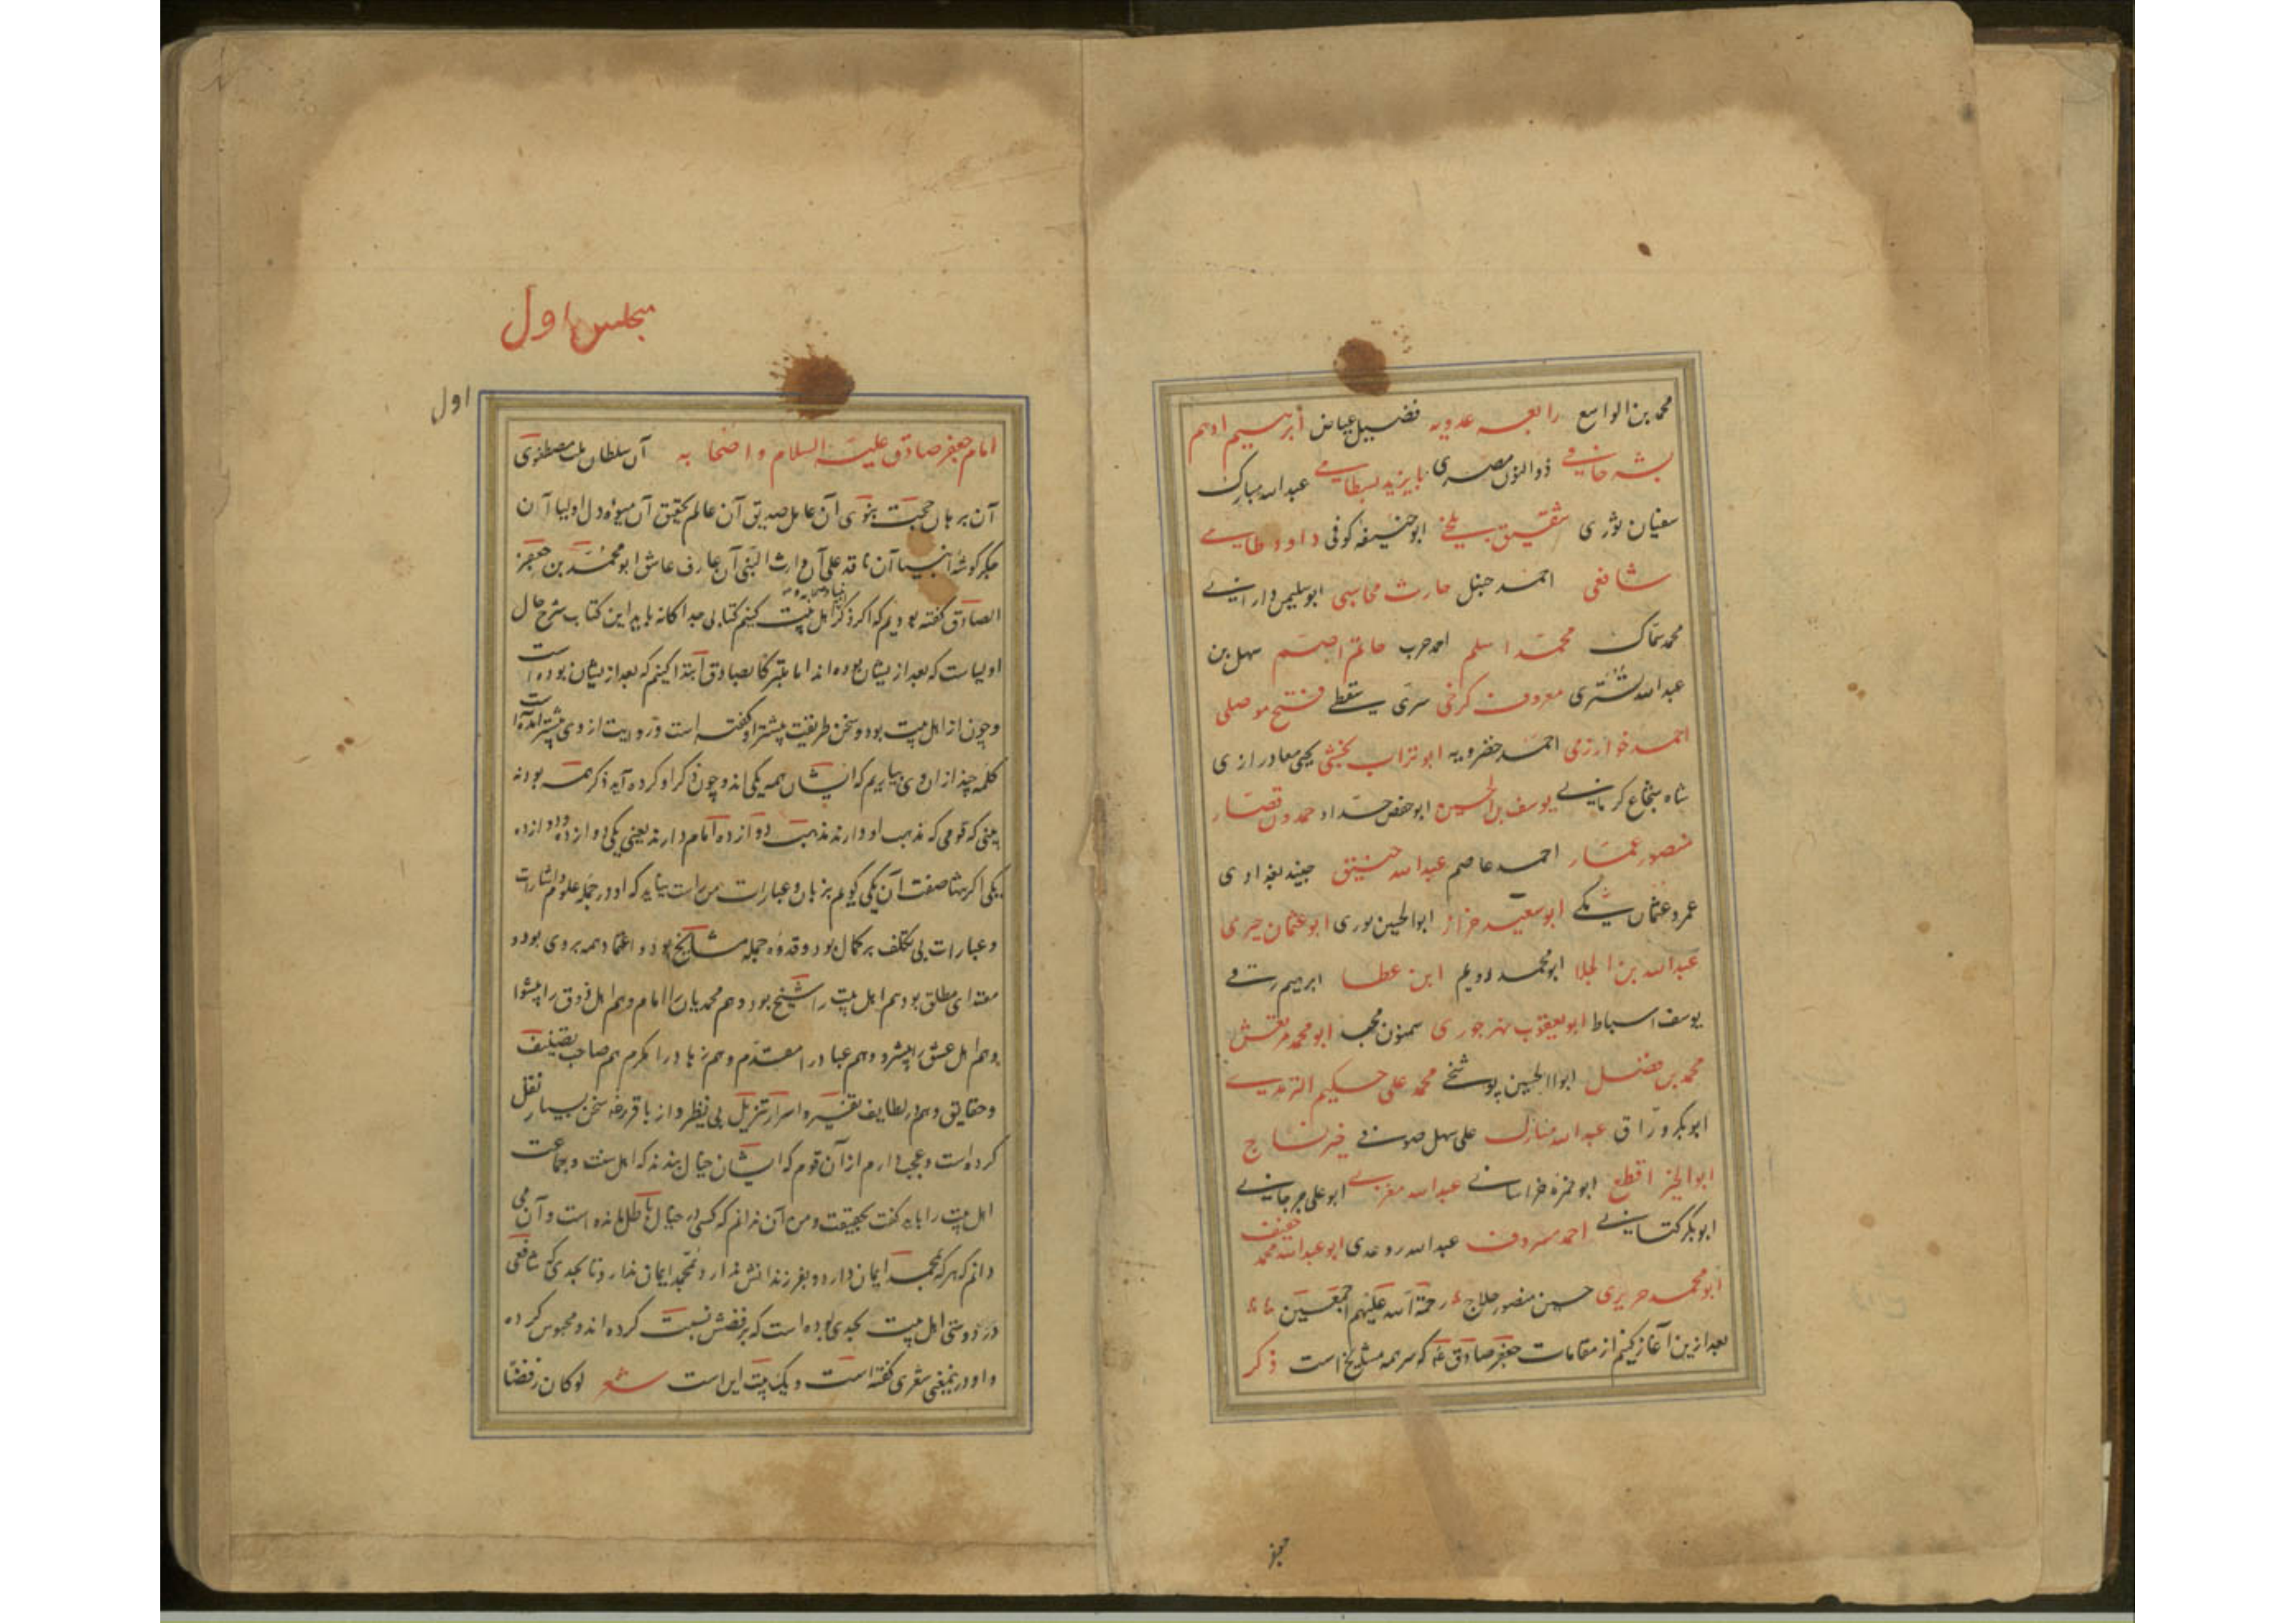 محمد بن الواسع رابعه عدویه فضیل عیاض ابرهیم ادهم
بشر حافی ذوالنون مصری بایزید بسطامی عبدالله مبارک
سفیان ثوری شقیق بلخی ابوحنیفه کوفی داود طایی
شافعی احمد حنبل حارث محاسبی ابوسلیمن دارانی
محمد سماک محمد اسلم احمد حرب حاتم اصم سهل بن
عبدالله تستری معروف کرخی سری سقطی فتح موصلی
احمد خوارزمی احمد خضرویه ابوتراب نخشبی یحیی معاد رازی
شاه شجاع کرمانی یوسف بن الحسین ابوحفص حداد حمدون قصار
منصور عمار احمد عاصم عبدالله خبیق جنید بغدادی
عمرو عثمان مکی ابوسعید خراز ابوالحسین نوری ابوعثمان حیری
عبدالله بن الجلا ابومحمد رویم ابن عطا ابرهیم رقی
یوسف اسباط ابویعقوب نهرجوری سمنون محب ابومحمد مرتعش
محمد بن فضل ابواالحسین پوشنجی محمد علی حکیم الترمذی
ابوبکر وراق عبدالله منازل علی سهل صوفی خیر نساج
ابوالخیر اقطع ابوحمزه خراسانی عبدالله مغربی ابوعلی جرجانی
ابوبکر کتانی احمد مسروق عبدالله روغدی ابوعبدالله محمد خفیف
ابومحمد حریری حسین منصور حلاج رحمة الله علیهم اجمعین
بعد ازین آغاز کنیم از مقامات جعفر صادق که سر همه مشایخ است ذکر
مجلس اول
اول
امام جعفر صادق علیه السلام و اصحابه آن سلطان ملت مصطفوی
آن برهان حجت نبوی آن عامل صدیق آن عالم تحقیق آن میوه دل اولیا آن
جگرگوشه انبیا آن ناقد علی آن وارث النبی آن عارف عاشق ابومحمد بن جعفر
الصادق گفته بودیم که اگر ذکر اهل بیت کنیم کتابی جداگانه باید این کتاب شرح حال
اولیاست که بعد از یشان بوده اند اما بتبرک بصادق ابتدا کنیم که بعد از یشان بوده است
و چون از اهل بیت بود و سخن طریقت بیشتر او گفته است و روایت از وی بیشتر آمده است
کلمه چند از ان وی بیاریم که ایشان همه یکی اند و چون ذکر او کرده آید ذکر همه بود نه
بینی که قومی که مذهب او دارند مذهب دوازده امام دارند یعنی یکی دوازده و دوازده
یکی اگر تنها صفت آن یکی گویم بزبان و عبارات من راست نیاید که او در جمله علوم و اشارات
و عبارات بی تکلف بر کمال بود و قدوه جمله مشایخ بود و اعتماد همه بر وی بود و
مقتدای مطلق بود هم اهل بیت را شیخ بود و هم محمدیان را امام و هم اهل ذوق را پیشوا
و هم اهل عشق را پیشرو و هم عباد را مقدم و هم زهاد را مکرم هم صاحب تصنیف
و حقایق و هم در لطایف تفسیر و اسرار تنزیل بی نظیر و از باقر رضه سخن بسیار نقل
کرده است و عجب دارم از آن قوم که ایشان خیال بندند که اهل سنت و جماعت
اهل بیت را باید گفت بحقیقت و من آن ندانم که کسی در خیال باطل مانده است و آن می
دانم که هر که بمحمد ایمان دارد و بفرزندانش ندارد بمحمد ایمان ندارد تا بحدی که شافعی
در دوستی اهل بیت بحدی بوده است که برفضش نسبت کرده اند و محبوس کرده
و او در ینمعنی شعری گفته است و یک بیت این است شعر لو کان رفضا